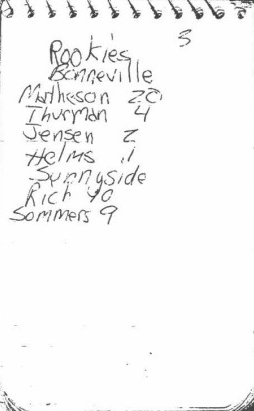 3
Rookies
Bonneville
Matheson 20
Thurman 4
Jensen 2
Helms .1
Sunnyside
Rich 40
Sommers 9